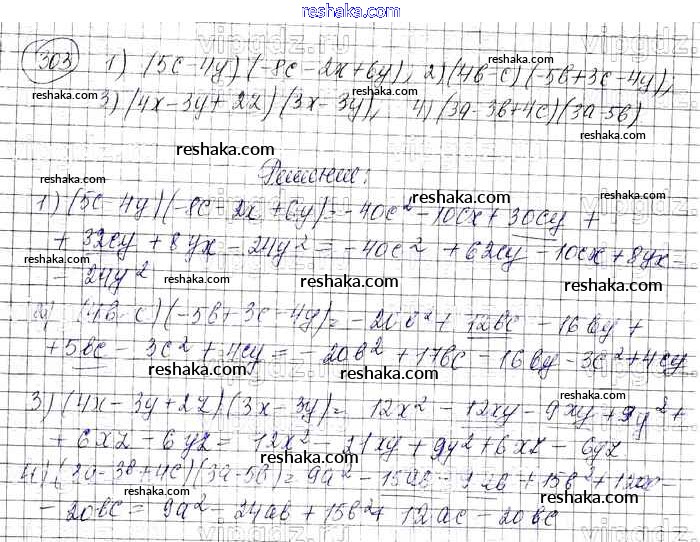 reshaka.com
303 1) (5c-4y)(-8c-2x+6y), 2)(4b-c)(-5b+3c-4y),
3) (4x-3y+2z)(3x-3y), 4) (3a-3b+4c)(3a-5b)
Решение:
1) (5c-4y)(-8c-2x+6y)=-40c²-10cx+30cy+
+32cy+8yx-24y²=-40c²+62cy-10cx+8yx-
-24y²
2) (4b-c)(-5b+3c-4y)=-20b²+12bc-16by+
+5bc-3c²+4cy=-20b²+17bc-16by-3c²+4cy
3) (4x-3y+2z)(3x-3y)=12x²-12xy-9xy+9y²+
+6xz-6yz=12x²-21xy+9y²+6xz-6yz
4) (3a-3b+4c)(3a-5b)=9a²-15ab-9ab+15b²+12ac-
-20bc=9a²-24ab+15b²+12ac-20bc